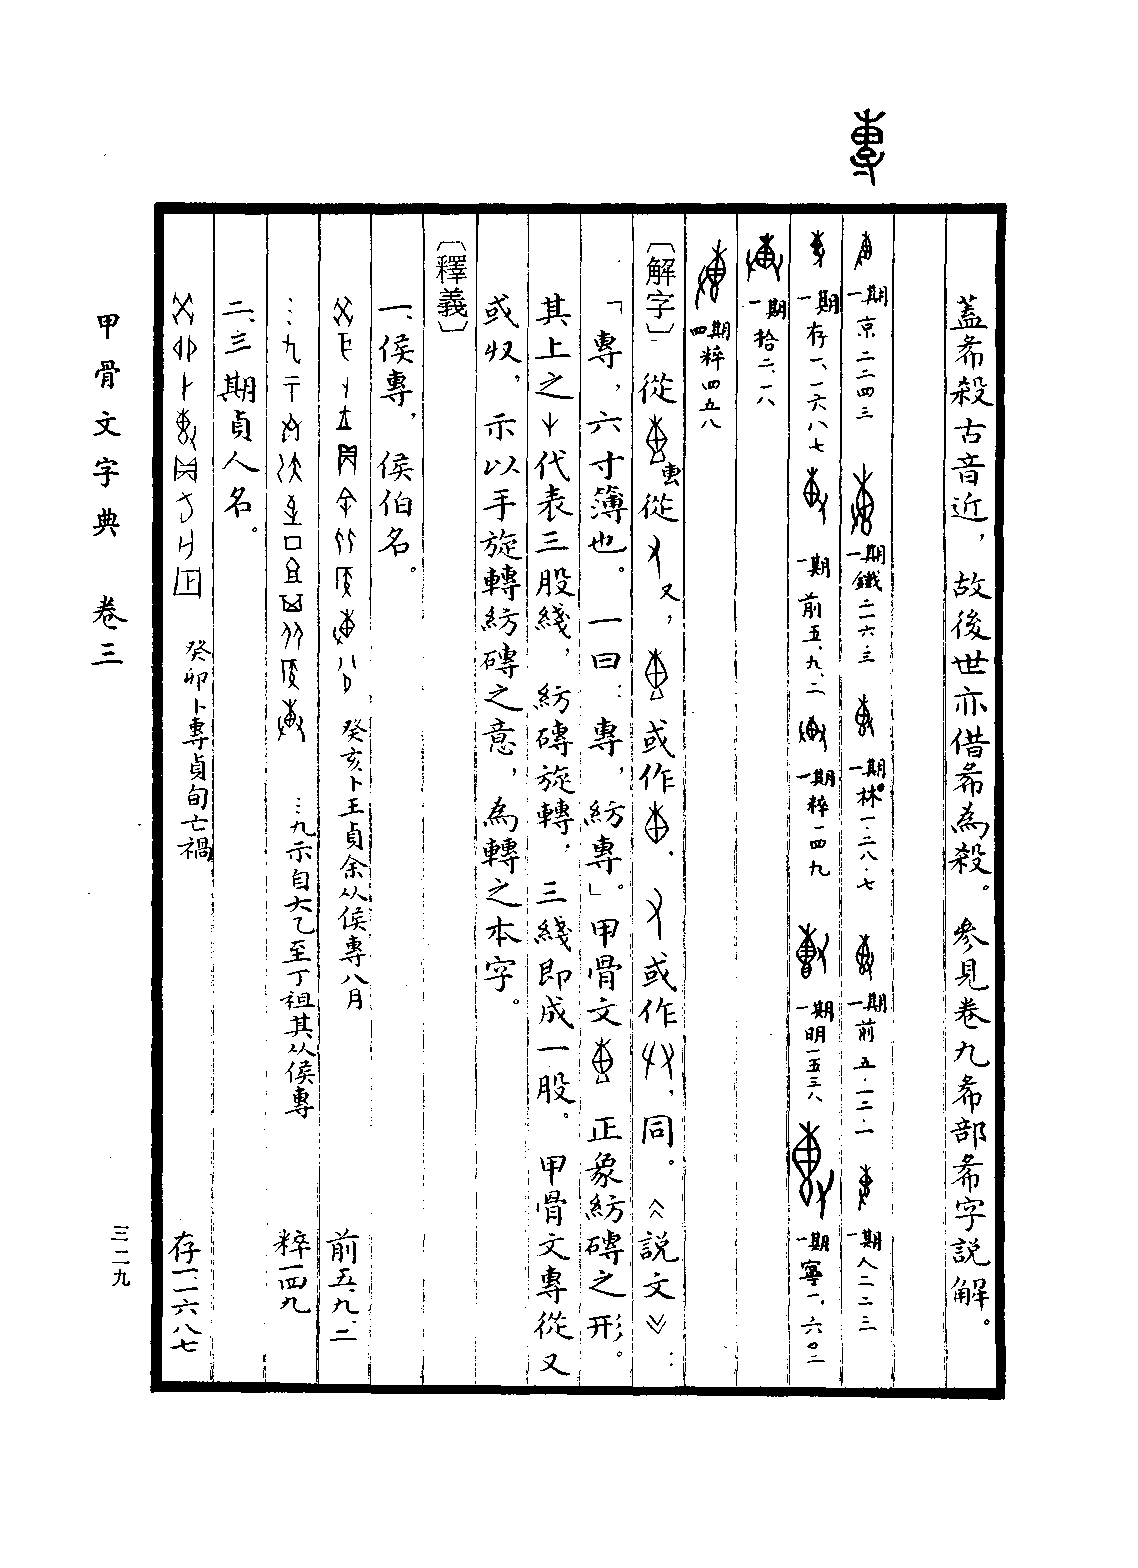 專
蓋㣇殺古音近，故後世亦借㣇為殺。參見卷九㣇部㣇字說解。
一期 京二二四三 一期 鐵二一六·三 一期 林一·二八·七 一期 前五·一二·一 一期 人二二三
一期 存一、一六八七 一期 前五、九、二 一期 粹一四九 一期 明一五三八 一期 寧一、六〇二
一期 拾二、一八
四期 粹四五八
〔解字〕從叀從又，或作，或作，同。《說文》：
「專，六寸簿也。一曰：專，紡專」。甲骨文正象紡磚之形。
其上之代表三股綫，紡磚旋轉，三綫即成一股。甲骨文專從又
或収，示以手旋轉紡磚之意，為轉之本字。
〔釋義〕
一、侯專，侯伯名。
癸亥卜王貞余从侯專八月 前五、九、二
…九示自大乙至丁祖其从侯專 粹一四九
二、三期貞人名。
癸卯卜專貞旬亡禍 存一、一六八七
甲骨文字典 卷三
三二九